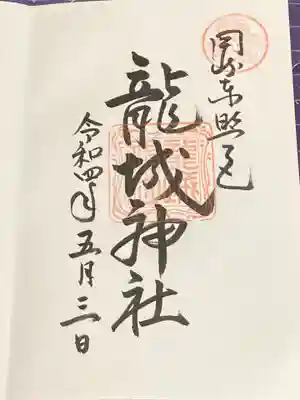 岡崎東照宮
龍城神社
令和四年五月三日